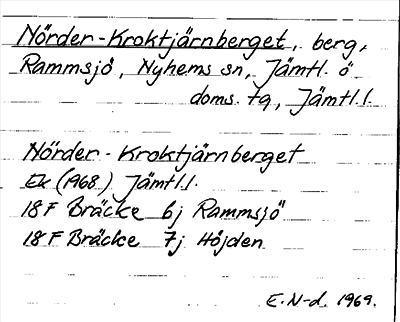 Nörder-Kroktjärnberget, berg,
Rammsjö, Nyhems sn, Jämtl. ö
doms. tg, Jämtl.l.
Nörder-Kroktjärnberget
Ek (1968) Jämtl.l.
18 F Bräcke 6j Rammsjö
18 F Bräcke 7j Höjden
E. N-d. 1969.